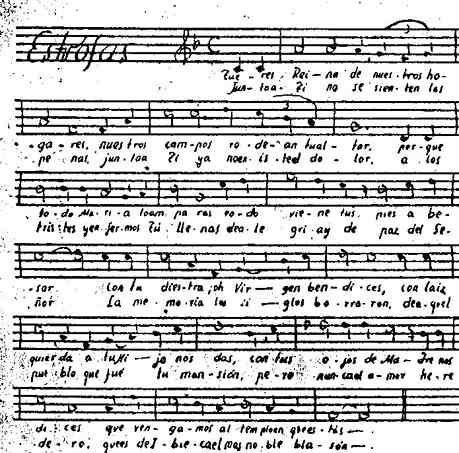 Estrofas
Tue - res Rei - na de nues - tros ho -
Jun - toa Ti no se sien - ten las
- ga - res, nues tros cam - pos ro - de - an tual - tar, por - que
pe nas, jun - toa Ti ya noex - is - teel do - lor, a los
to - do Ma - ri - a loam pa ras to - do vie - ne tus pies a be -
tris - tes yen - fer - mos Tú lle - nas dea - le gri - ay de paz del Se -
- sar. Con tu dies - tra, oh Vir - gen ben - di - ces, con la iz
ñor La me - mo - ria los si - glos bo - rra - ron, dea - quel
quier da a tu Hi - jo nos das, con tus o - jos de Ma - dre nos
pue - blo que fué tu man - sión, pe - ro nun - cael a - mor he - re
di - ces que ven - ga - mos al templo en que es - tás - .
de - ro, que es del bie - cael mas no - ble bla - són - .